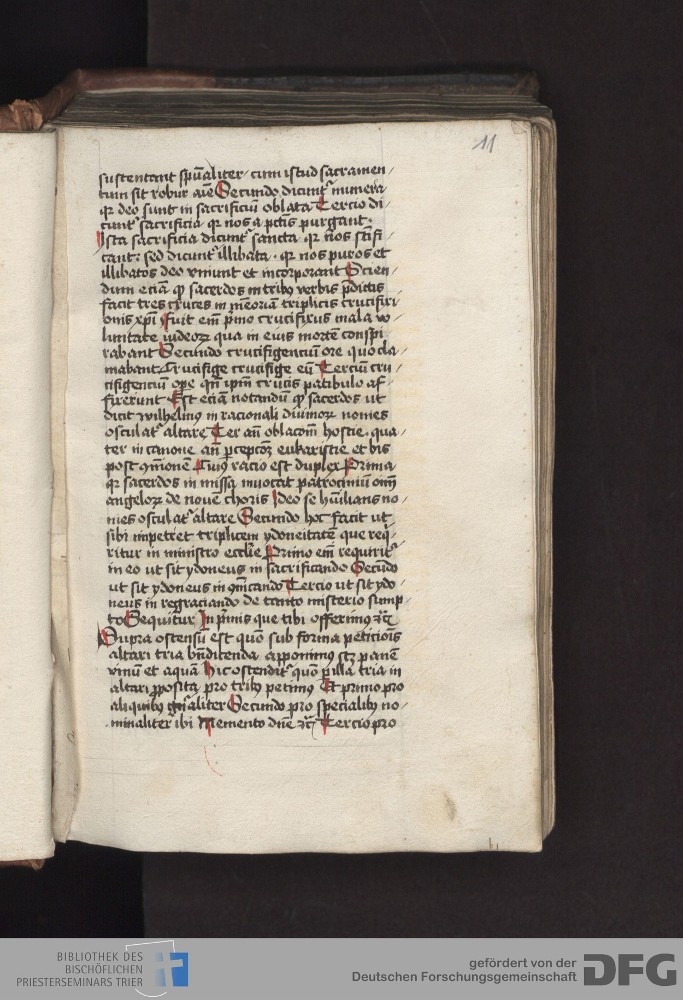 11
sustentant spũaliter cum istud sacramen
tum sit robur aĩe Secundo dicunt͛ munera
qꝛ deo sunt in sacrificiũ oblata Tercio di
cunt͛ sacrificia qꝛ nos a pctĩs purgant
Ista sacrificia dicunt͛ sancta qꝛ nos scĩfi
cant: sed dicunt͛ illibata qꝛ nos puros et
illibatos deo vniunt et incorporant Scien
dum eciã ꝙ sacerdos in tribꝰ verbis p̃dictis
facit tres cruces in mẽoriam triplicis crucifixi
onis xp̃i fuit em̃ p̃mo crucifixus mala vo
luntate iudeoꝝ qua in eius mortẽ conspi
rabant Secundo crucifigenciũ ore quo cla
mabant Crucifige crucifige eũ Tercũ cru
cifigenciũ oꝑe qñ ip̃m crucis patibulo af
fixerunt Est eciã notandũ ꝙ sacerdos ut
dicit wilhelmꝰ in racionali diuinoꝝ nouies
osculat͛ altare Ter añ oblacom̃ hostie qua
ter in canone añ ꝑcepcõꝫ eukaristie et bis
post ꝯmoniõnẽ Cuiꝰ racio est duplex Prima
qꝛ sacerdos in missa inuocat patrociniũ om̃
angeloꝝ de nouẽ choris Ideo se hũilians no
uies osculat͛ altare Secundo hoc facit ut
sibi impetret triplicem ydoneitatẽ que req̃
ritur in ministro eccl̃ie Primo em̃ requirit͛
in eo ut sit ydoneus in sacrificando Secũdo
ut sit ydoneus in ꝯm̃icando Tercio ut sit ydo
neus in regraciando de tanto misterio sump
to Sequitur In p̃mis que tibi offerimꝰ ⁊c̃
Supra ostensũ est quõ sub forma peticiõis
altari tria bñdicenda apponimus scꝫ panẽ
vinũ et aquam Hic ostendit͛ quõ ꝑ illa tria in
altari ꝓposita pro tribꝰ petimꝰ Et primo pro
aliquibꝰ gñaliter Secundo pro specialibꝰ no
minaliter ibi Memento dñe ⁊c̃ Tercio pro
BIBLIOTHEK DES
BISCHÖFLICHEN
PRIESTERSEMINARS TRIER
gefördert von der
Deutschen Forschungsgemeinschaft
DFG